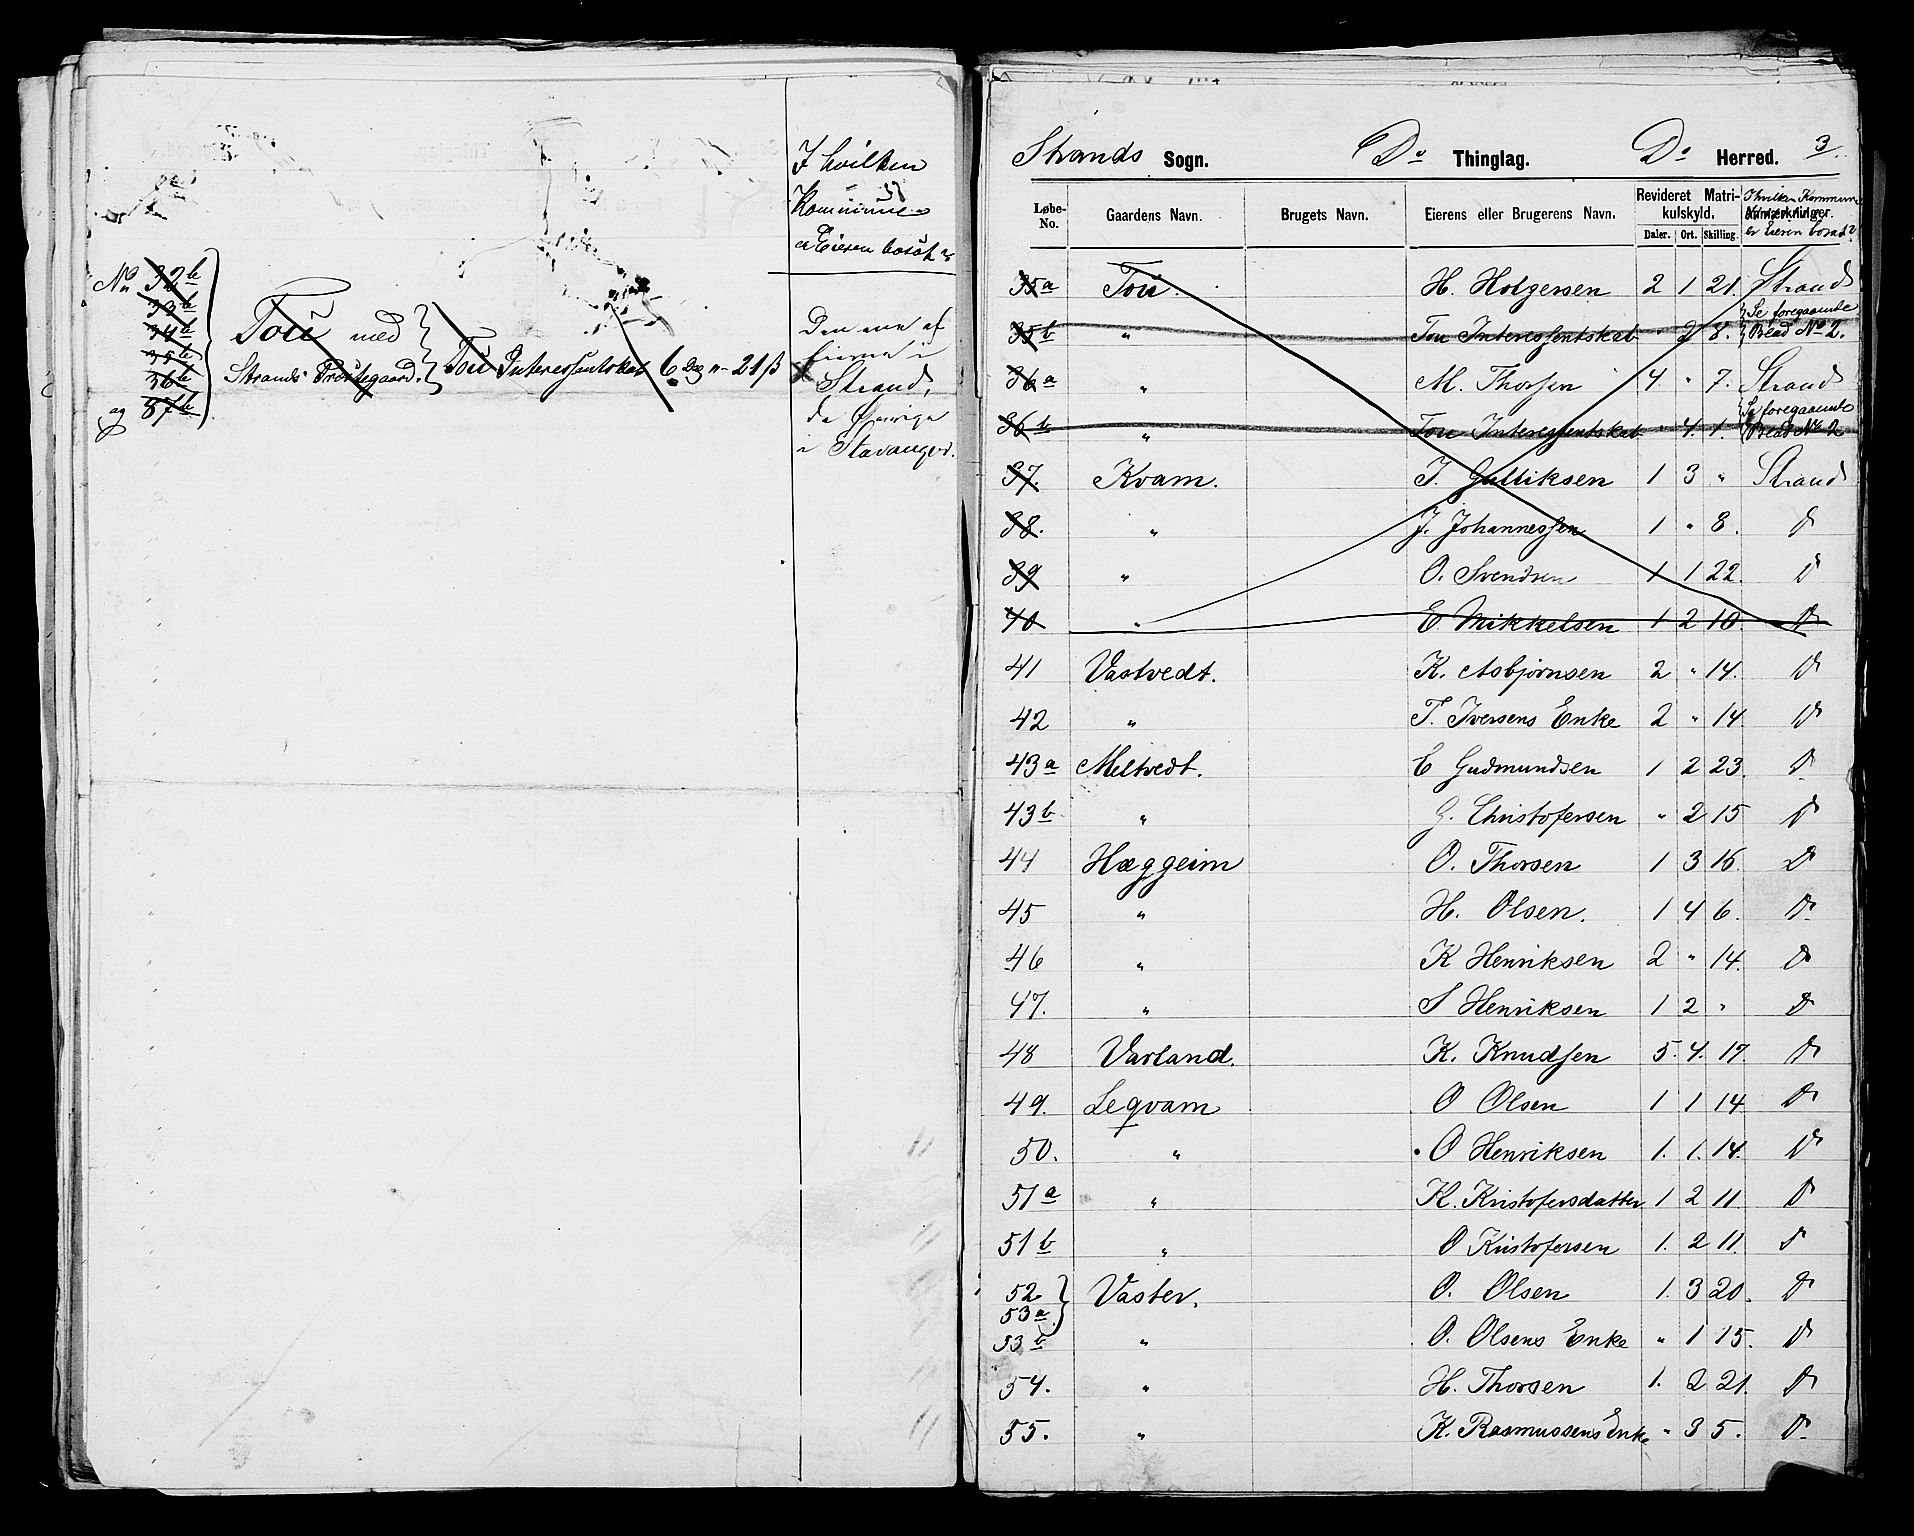 I hvilken
Kommune
er Eieren bosat?
No 32b
33b
34b
35b
36b
og 37b
Tou med
Strands Præstegaard.
Tou Interessentskab 6 Dlr " 21 ß
Den ene af
Eierne i
Strand,
de Øvrige
i Stavanger.
Strands Sogn. Do Thinglag. Do Herred. 3
Løbe-No. Gaardens Navn. Brugets Navn. Eierens eller Brugerens Navn. Revideret Matrikulskyld. Daler. Ort. Skilling. Anmærkninger. I hvilken Kommune er Eieren bosat?
35a Tou. H. Holgersen 2 1 21. Strand
35b " Tou Interessentskab " 2 8. Se foregaaende Blad No 2.
36a " M. Thorsen 4. " 7. Strand
36b " Tou Interessentskab " 4. 1. Se foregaaende Blad No 2
37. Kvam. J. Gulliksen 1 3 " Strand
38. " J. Johannessen 1 " 8. Do
39 " O. Svendsen 1 1 22. Do
40 " E. Mikkelsen 1 2 10. Do
41 Vastvedt. K. Asbjørnsen 2 " 14. Do
42 " T. Iversens Enke 2 " 14. Do
43a Meltvedt. E Gudmundsen 1 2 23. Do
43b " G. Christofersen " 2 15 Do
44 Hæggeim O. Thorsen 1 3 16. Do
45 " H. Olsen. 1 4 6. Do
46 " K Henriksen 2 " 14. Do
47. " S Henriksen 1 2 " Do
48 Varland. K. Knudsen 5. 4. 17. Do
49. Leqvam O Olsen 1 1 14 Do
50. " O Henriksen 1. 1. 14. Do
51a " K. Kristofersdatter 1. 2 11. Do
51b " O Kristofersen 1. 2 11. Do
52 53a Vaster. O. Olsen 1. 3 20. Do
53b " O. Olsens Enke " 1 15. Do
54. " H. Thorsen 1. 2 21. Do
55. " K. Rasmussens Enke " 3 5. Do